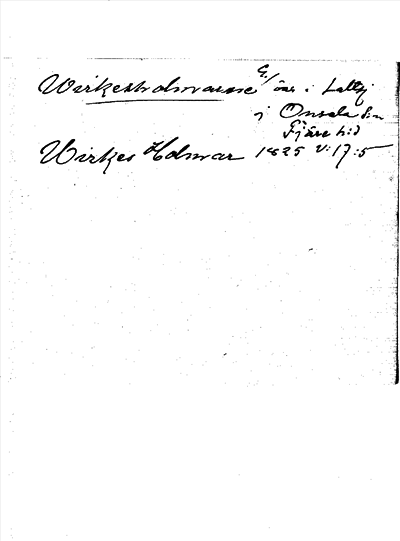 Wirkesholmarne G/ öar i
i Onsala sn
Fjäre hd
Wirkes Holmar 1825 V:17:5